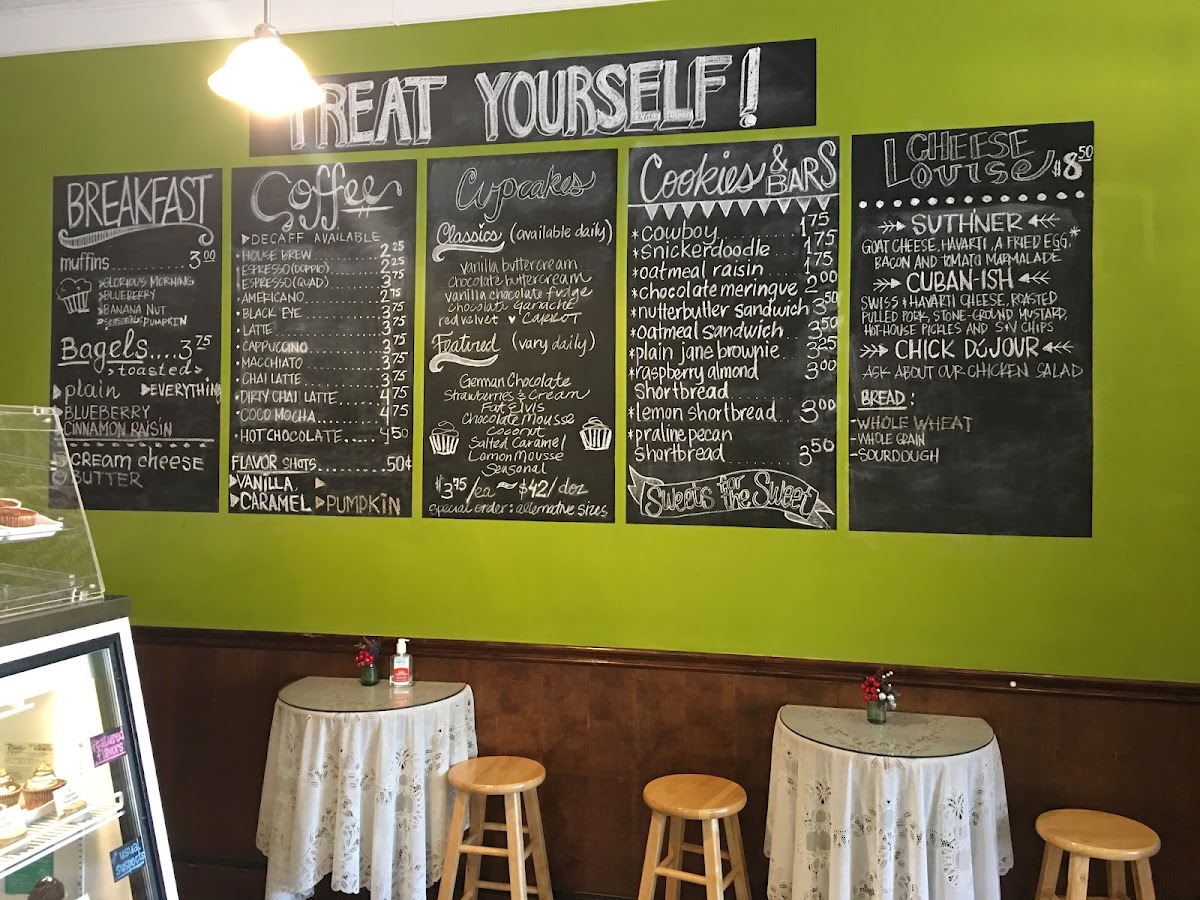 TREAT YOURSELF!
BREAKFAST
muffins..........3.00
GLORIOUS MORNING
BLUEBERRY
BANANA NUT
SEASONAL: PUMPKIN
Bagels....3.75
toasted
plain EVERYTHING
BLUEBERRY
CINNAMON RAISIN
CREAM CHEESE
BUTTER
Coffee
DECAFF AVAILABLE
HOUSE BREW 2.25
ESPRESSO (DOPPIO) 2.25
ESPRESSO (QUAD) 3.75
AMERICANO 2.75
BLACK EYE 3.75
LATTE 3.75
CAPPUCCINO 3.75
MACCHIATO 3.75
CHAI LATTE 3.75
DIRTY CHAI LATTE 4.75
COCO MOCHA 4.75
HOT CHOCOLATE 4.50
FLAVOR SHOTS 50¢
VANILLA,
CARAMEL PUMPKIN
Cupcakes
Classics (available daily)
vanilla buttercream
chocolate buttercream
vanilla chocolate fudge
chocolate ganache
red velvet ♥ CARROT
Featured (vary daily)
German Chocolate
Strawberries & Cream
Fat Elvis
Chocolate Mousse
Coconut
Salted Caramel
Lemon Mousse
Seasonal
$3.75/ea ~ $42/doz
special order: alternative sizes
Cookies & BARS
*cowboy 1.75
*snickerdoodle 1.75
*oatmeal raisin 1.75
*chocolate meringue 2.00
*nutterbutter sandwich 3.50
*oatmeal sandwich 3.50
*plain jane brownie 3.25
*raspberry almond 3.00
shortbread
*lemon shortbread 3.00
*praline pecan
shortbread 3.50
Sweets for the Sweet
CHEESE
LOUISE $8.50
SUTHNER
GOAT CHEESE, HAVARTI, A FRIED EGG,*
BACON AND TOMATO MARMALADE
CUBAN-ISH
SWISS & HAVARTI CHEESE, ROASTED
PULLED PORK, STONE-GROUND MUSTARD,
HOT-HOUSE PICKLES AND S&V CHIPS
CHICK DÚJOUR
ASK ABOUT OUR CHICKEN SALAD
BREAD:
-WHOLE WHEAT
-WHOLE GRAIN
-SOURDOUGH
Featured
flavors
usual
suspects